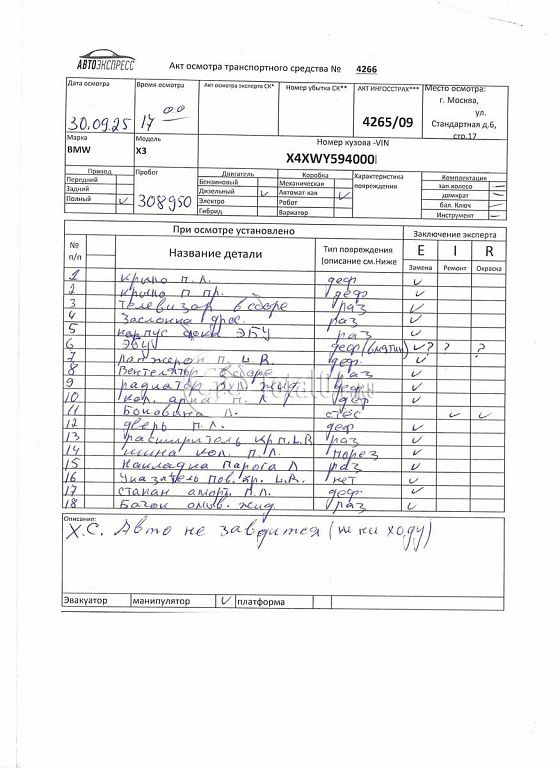 АВТОЭКСПРЕСС
Акт осмотра транспортного средства № 4266
Дата осмотра Время осмотра Акт осмотра эксперта СК* Номер убытка СК** АКТ ИНГОССТРАХ*** Место осмотра:
30.09.25 17 00 4265/09 г. Москва,
ул.
Стандартная д.6,
стр.17
Марка Модель Номер кузова -VIN
BMW X3 X4XWY594000
Привод Пробег Двигатель Коробка Характеристика повреждения Комплектация
Передний Бензиновый Механическая зап.колесо —
Задний 308950 Дизельный ✓ Автомат-кая ✓ домкрат —
Полный ✓ Электро Робот бал. Ключ —
Гибрид Вариатор Инструмент —
При осмотре установлено Заключение эксперта
№ п/п Название детали Тип повреждения (описание см.Ниже E I R
Замена Ремонт Окраска
1 крыло п.л. деф ✓
2 крыло п пр. деф ✓
3 телевизор в сборе раз ✓
4 Заслонка дрос. раз ✓
5 корпус блока ЭБУ раз ✓
6 ЭБУ деф(вмятин) ✓? ? ?
7 лонжерон п. деф ✓
8 Вентелятор в сборе раз ✓
9 радиатор охл жид. деф ✓
10 кол. арка п. л деф ✓
11 Боковина л. ✓ ✓
12 дверь п.л. деф ✓
13 расширитель кр п. раз ✓
14 шина кол. п.л. порез ✓
15 Накладка Порога Л раз ✓
16 Указатель пов. кр. нет ✓
17 стакан аморт. п.л. деф. ✓
18 Бачок омыв. жид раз ✓
Описание:
Х.С. Авто не заводится (ни ходу)
Эвакуатор манипулятор ✓ платформа